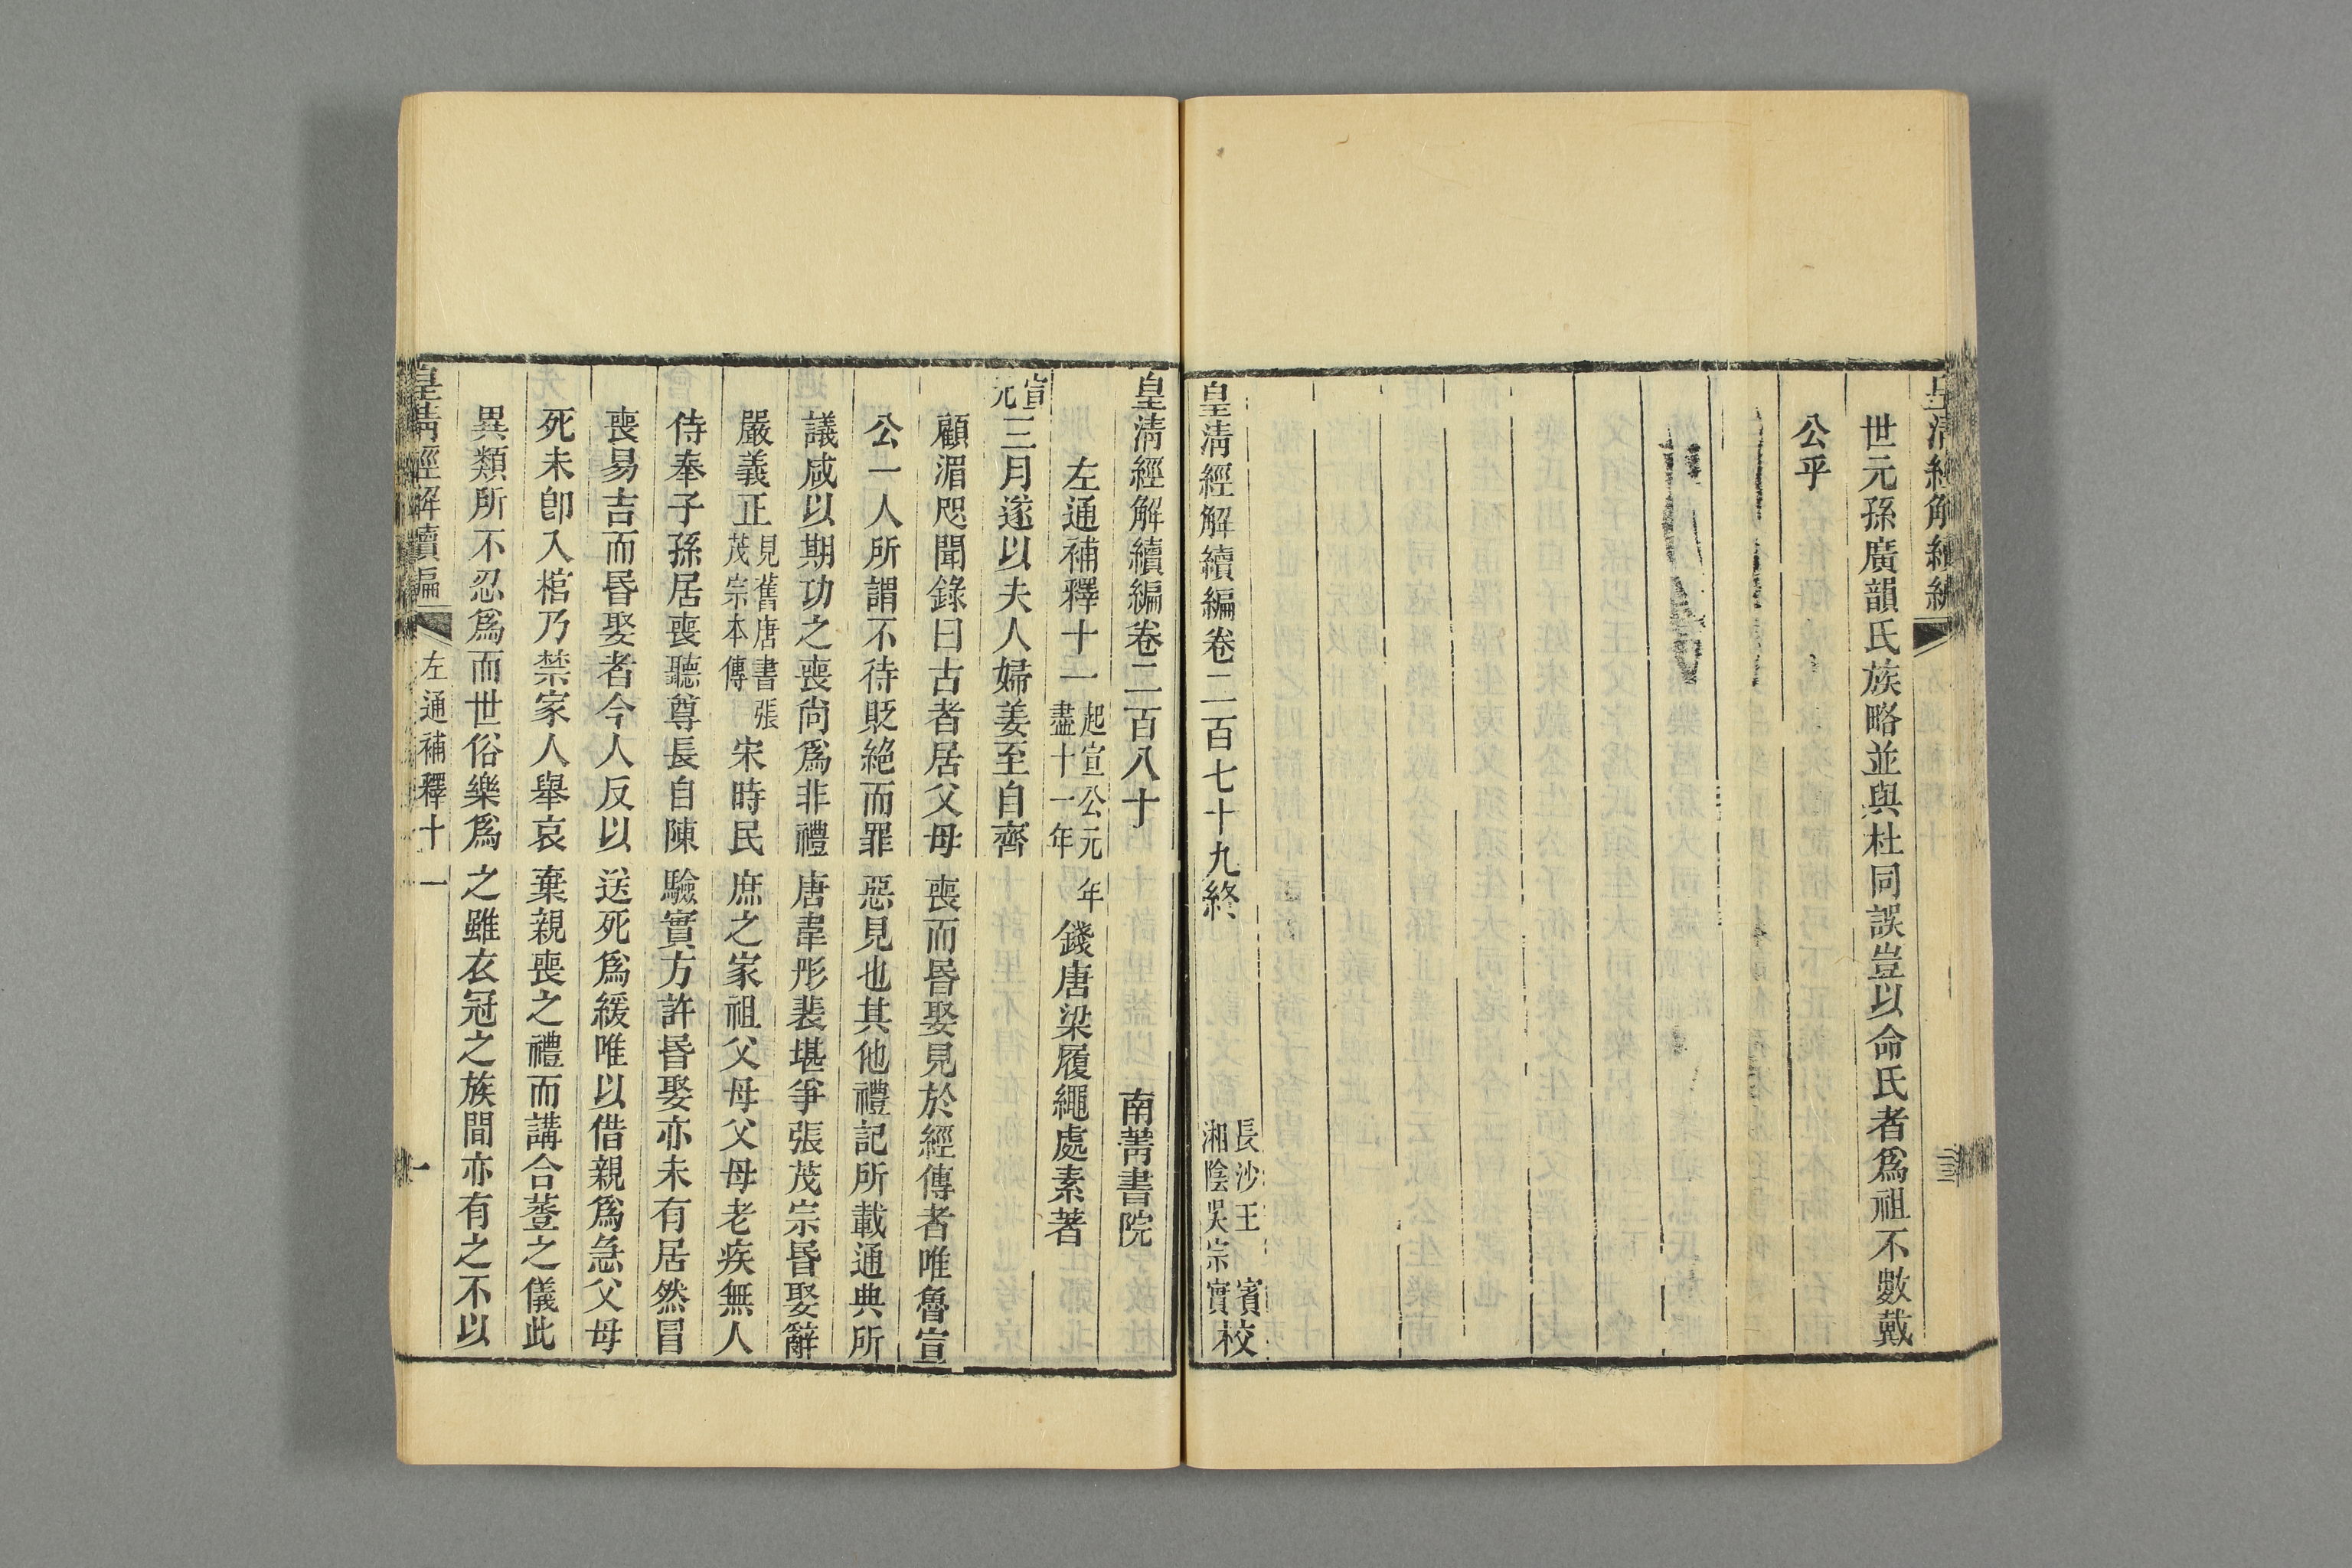 皇淸經解續編
世元孫廣韻氏族略並與杜同誤豈以命氏者爲祖不數戴
公乎
皇淸經解續編卷二百七十九終
長沙王 賓校
湘陰吳宗實
皇淸經解續編卷二百八十 南菁書院
左通補釋十一 起宣公元年盡十一年 錢唐梁履繩處素著
宣元三月遂以夫人婦姜至自齊
顧湄咫聞錄曰古者居父母喪而昏娶見於經傳者唯魯宣
公一人所謂不待貶絕而罪惡見也其他禮記所載通典所
議咸以期功之喪尙爲非禮唐韋彤裴堪爭張茂宗昏娶辭
嚴義正見舊唐書張茂宗本傳宋時民庶之家祖父母父母老疾無人
侍奉子孫居喪聽尊長自陳驗實方許昏娶亦未有居然冒
喪易吉而昏娶者今人反以送死爲緩唯以借親爲急父母
死未卽入棺乃禁家人舉哀棄親喪之禮而講合巹之儀此
異類所不忍爲而世俗樂爲之雖衣冠之族間亦有之不以
皇淸經解續編 左通補釋十一 一